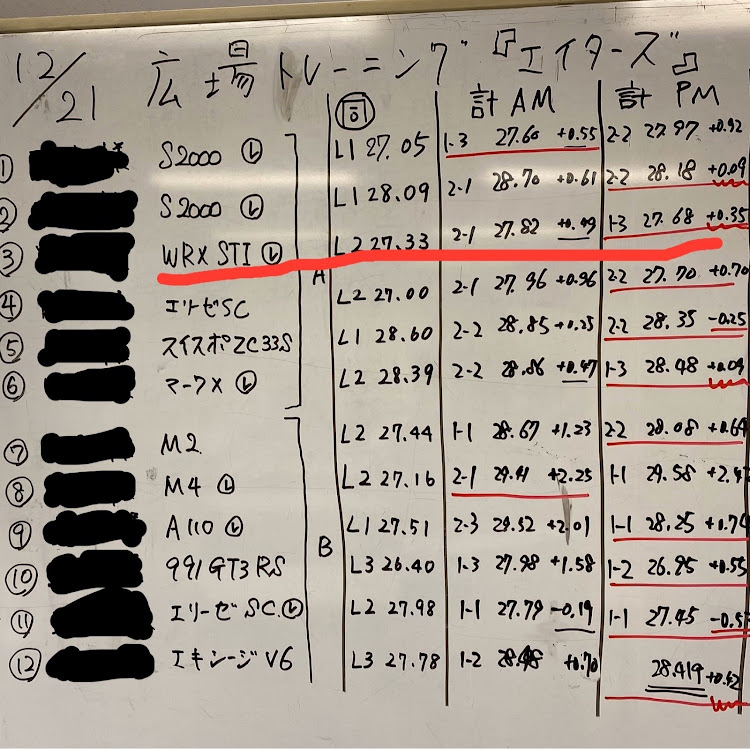 12/21 広場トレーニング『エイターズ』
回 計 AM 計 PM
① S2000 Ⓛ L1 27.05 1-3 27.60 +0.55 2-2 27.97 +0.92
② S2000 Ⓛ L1 28.09 2-1 28.70 +0.61 2-2 28.18 +0.09
③ WRX STI Ⓛ L2 27.33 2-1 27.82 +0.49 1-3 27.68 +0.35
A
④ エリーゼSC L2 27.00 2-1 27.96 +0.96 2-2 27.70 +0.70
⑤ スイスポZC33S L1 28.60 2-2 28.85 +0.25 2-2 28.35 -0.25
⑥ マークX Ⓛ L2 28.39 2-2 28.86 +0.47 1-3 28.48 +0.09
⑦ M2 L2 27.44 1-1 28.67 +1.23 2-2 28.08 +0.64
⑧ M4 Ⓛ L2 27.16 2-1 29.41 +2.25 1-1 29.58
⑨ A110 Ⓛ L1 27.51 2-3 29.52 +2.01 1-1 28.25 +0.74
B
⑩ 991 GT3 RS L3 26.40 1-3 27.98 +1.58 1-2 26.95 +0.55
⑪ エリーゼSC Ⓛ L2 27.98 1-1 27.79 -0.19 1-1 27.45 -0.53
⑫ エキシージV6 L3 27.78 1-2 28.48 +0.70 28.419